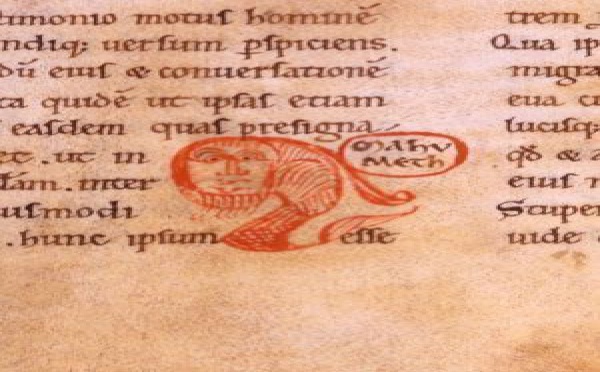 timonio motuſ hominē
ndiq; uerſum ꝑſpiciens.
dū eiuſ & conuerſationē
ta quidē ut ipſaſ etiam
eaſdem quaſ preſigna
ec. ut in
ſam. inter
uſmodi
. hunc ipſum eſſe
Mahu
meth
trem
Qua ip
migra
eua c
luciſq;
qđ &
eiuſ
Stupe
uide